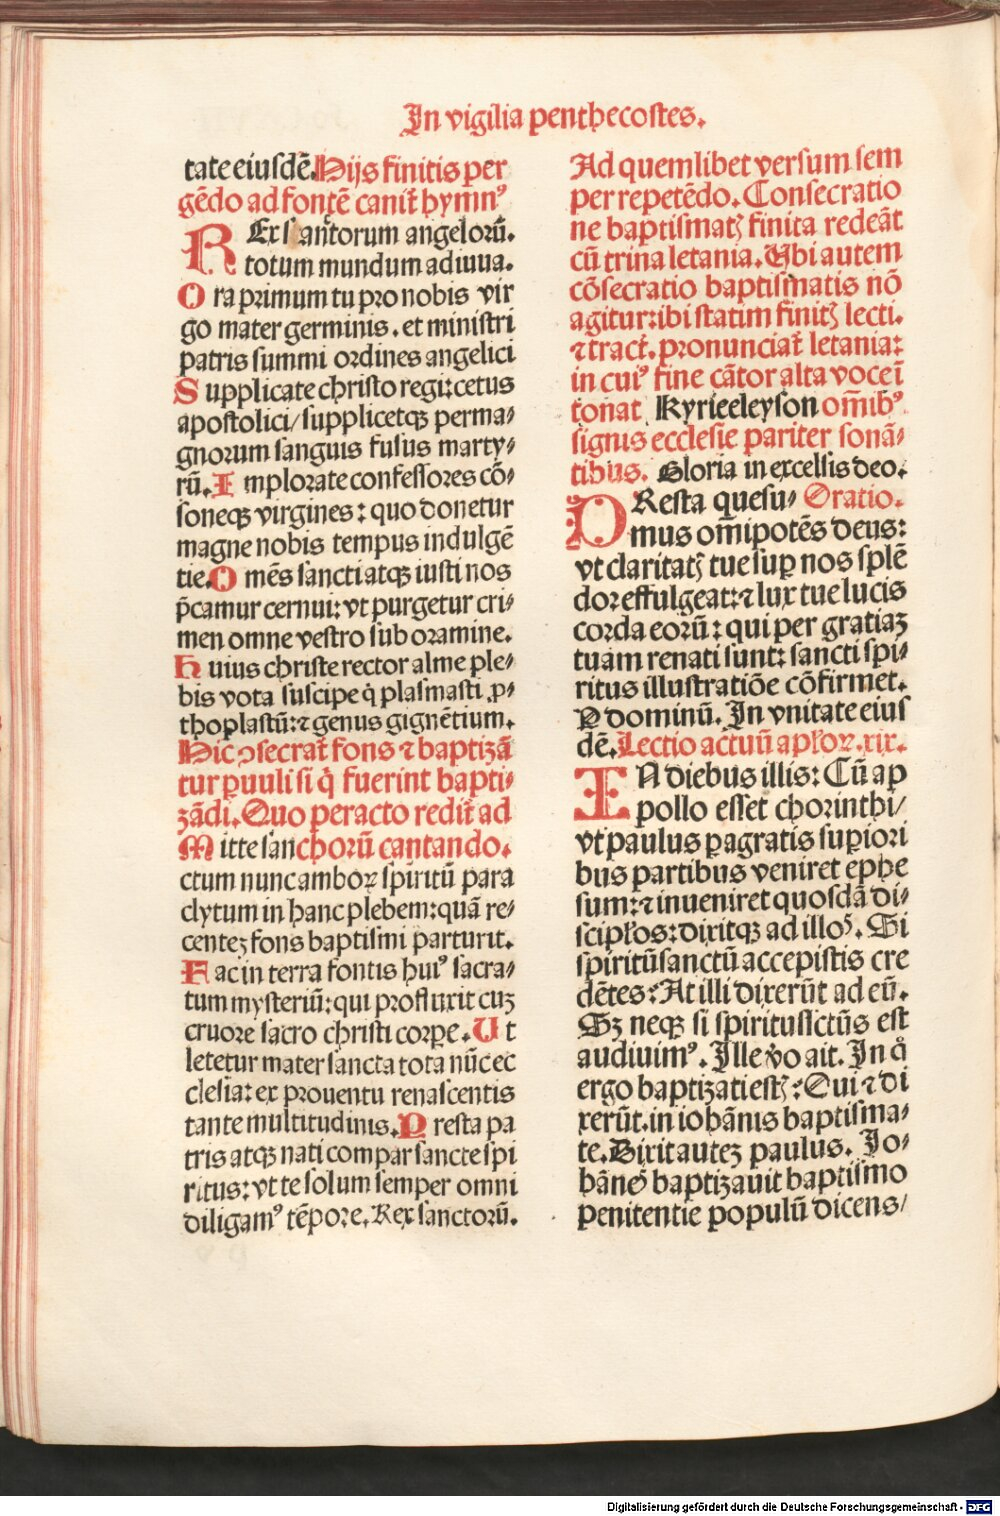 In vigilia penthecostes.
tate eiusdē. Hijs finitis per
gēdo ad fontē canit̄ hymnꝰ
REx sanctorum angelorū.
totum mundum adiuua.
Ora primum tu pro nobis vir
go mater germinis. et ministri
patris summi ordines angelici
Supplicate christo regi: cetus
apostolici/ supplicetqꝫ perma⸗
gnorum sanguis fusus marty⸗
rū. Implorate confessores cō⸗
soneqꝫ virgines: quo donetur
magne nobis tempus indulgē
tie. Omēs sancti atqꝫ iusti nos
p̄camur cernui: vt purgetur cri⸗
men omne vestro sub oramine.
Huius christe rector alme ple⸗
bis vota suscipe q̇ plasmasti ꝓ⸗
thoplastū: ⁊ genus gignētium.
Hic ↄsecrat̄ fons ⁊ baptizā
tur puuli si q̇ fuerint bapti⸗
zādi. Quo peracto redit̄ ad
Mitte san chorū cantando.
ctum nunc amboꝝ spiritū para
clytum in hanc plebem: quā re⸗
centeꝫ fons baptismi parturit.
Fac in terra fontis huiꝰ sacra⸗
tum mysteriū: qui profluxit cuꝫ
cruore sacro christi corꝑe. Ut
letetur mater sancta tota nūc ec
clesia: ex prouentu renascentis
tante multitudinis. Presta pa
tris atqꝫ nati compar sancte spi
ritus: vt te solum semper omni
diligamꝰ tēpore. Rex sanctorū.
Ad quemlibet versum sem
per repetēdo. Consecratio
ne baptismatꝫ finita redeāt
cū trina letania. Ubi autem
cōsecratio baptismatis nō
agitur: ibi statim finitꝫ lecti.
⁊ tract̄. pronunciat̄ letania:
in cuiꝰ fine cātor alta voce ī
tonat Kyrieeleyson om̄ibꝰ
signis ecclesie pariter sonā⸗
tibus. Gloria in excelsis deo.
PResta quesu⸗ Oratio.
mus om̄ipotēs deus:
vt claritatꝫ tue suꝑ nos splē
dor effulgeat: ⁊ lux tue lucis
corda eorū: qui per gratiaꝫ
tuam renati sunt: sancti spi⸗
ritus illustratiōe cōfirmet.
P dominū. In vnitate eius
dē. Lectio actuū apl'oꝝ. xix.
IN diebus illis: Cū ap
pollo esset chorinthi/
vt paulus ꝑagratis suꝑiori
bus partibus veniret ephe
sum: ⁊ inueniret quosdā di⸗
scipl'os: dixitqꝫ ad illoˢ. Si
spiritū sanctū accepistis cre
dētes? At illi dixerūt ad eū.
Sꝫ neqꝫ si spiritussctūs est
audiuimꝰ. Ille v̓o ait. In q̊
ergo baptizati estꝫ? Qui ⁊ di
xerūt. in iohānis baptisma⸗
te. Dixit auteꝫ paulus. Jo⸗
hānes baptizauit baptismo
penitentie populū dicens/
Digitalisierung gefördert durch die Deutsche Forschungsgemeinschaft - DFG